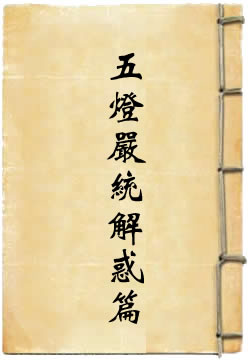 五燈嚴統解惑篇